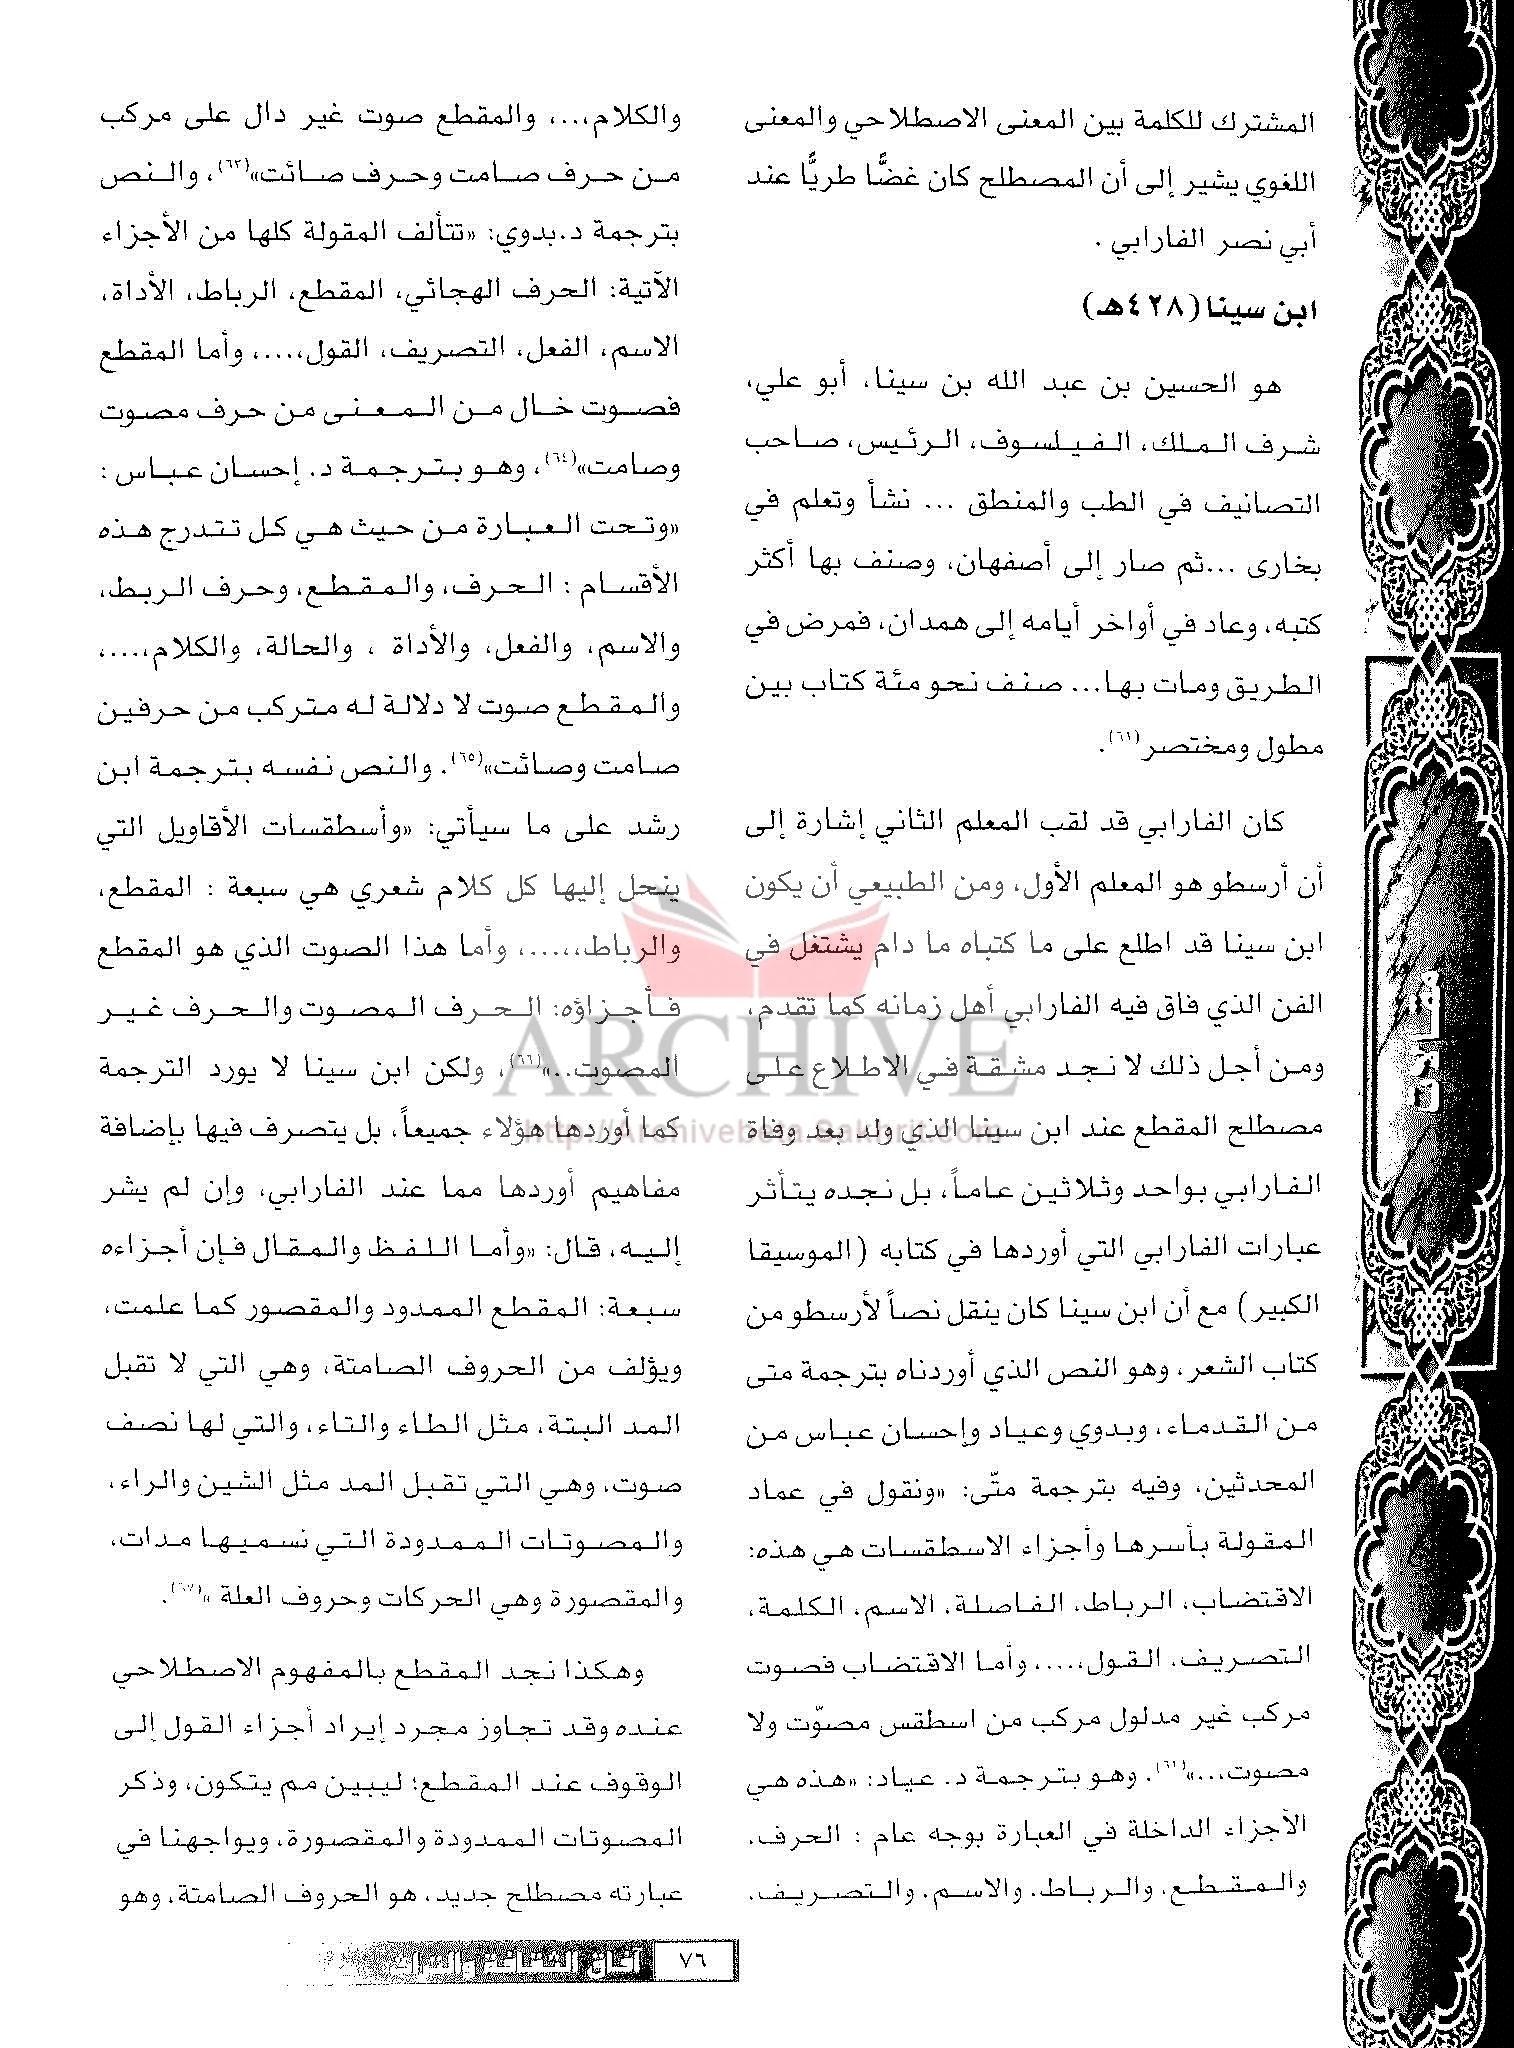 المشترك للكلمة بين المعنى الاصطلاحي والمعنى
اللغوي يشير إلى أن المصطلح كان غضًّا طريًّا عند
أبي نصر الفارابي .
ابن سينا (٤٢٨هـ)
هو الحسين بن عبد الله بن سينا، أبو علي،
شرف الملك، الفيلسوف، الرئيس، صاحب
التصانيف في الطب والمنطق ... نشأ وتعلم في
بخارى ...ثم صار إلى أصفهان، وصنف بها أكثر
كتبه، وعاد في أواخر أيامه إلى همدان، فمرض في
الطريق ومات بها... صنف نحو مئة كتاب بين
مطول ومختصر(٦١).
كان الفارابي قد لقب المعلم الثاني إشارة إلى
أن أرسطو هو المعلم الأول، ومن الطبيعي أن يكون
ابن سينا قد اطلع على ما كتباه ما دام يشتغل في
الفن الذي فاق فيه الفارابي أهل زمانه كما تقدم،
ومن أجل ذلك لا نجد مشقة في الاطلاع على
مصطلح المقطع عند ابن سينا الذي ولد بعد وفاة
الفارابي بواحد وثلاثين عاماً، بل نجده يتأثر
عبارات الفارابي التي أوردها في كتابه (الموسيقا
الكبير) مع أن ابن سينا كان ينقل نصاً لأرسطو من
كتاب الشعر، وهو النص الذي أوردناه بترجمة متى
من القدماء، وبدوي وعياد وإحسان عباس من
المحدثين، وفيه بترجمة متّى: «ونقول في عماد
المقولة بأسرها وأجزاء الاسطقسات هي هذه:
الاقتضاب، الرباط، الفاصلة، الاسم، الكلمة،
التصريف، القول،....، وأما الاقتضاب فصوت
مركب غير مدلول مركب من اسطقس مصوّت ولا
مصوت،...». وهو بترجمة د. عياد: «هذه هي
الأجزاء الداخلة في العبارة بوجه عام : الحرف،
والمقطع، والرباط، والاسم، والتصريف،
والكلام،..، والمقطع صوت غير دال على مركب
من حرف صامت وحرف صائت»(٦٣)، والنص
بترجمة د.بدوي: «تتألف المقولة كلها من الأجزاء
الآتية: الحرف الهجائي، المقطع، الرباط، الأداة،
الاسم، الفعل، التصريف، القول،....، وأما المقطع
فصوت خال من المعنى من حرف مصوت
وصامت»(٦٤)، وهو بترجمة د. إحسان عباس :
«وتحت العبارة من حيث هي كل تتدرج هذه
الأقسام : الحرف، والمقطع، وحرف الربط،
والاسم، والفعل، والأداة ، والحالة، والكلام،....،
والمقطع صوت لا دلالة له متركب من حرفين
صامت وصائت»(٦٥). والنص نفسه بترجمة ابن
رشد على ما سيأتي: «وأسطقسات الأقاويل التي
ينحل إليها كل كلام شعري هي سبعة : المقطع،
والرباط،،....، وأما هذا الصوت الذي هو المقطع
فأجزاؤه: الحرف المصوت والحرف غير
المصوت..»(٦٦)، ولكن ابن سينا لا يورد الترجمة
كما أوردها هؤلاء جميعاً، بل يتصرف فيها بإضافة
مفاهيم أوردها مما عند الفارابي، وإن لم يشر
إليه، قال: «وأما اللفظ والمقال فإن أجزاءه
سبعة: المقطع الممدود والمقصور كما علمت،
ويؤلف من الحروف الصامتة، وهي التي لا تقبل
المد البتة، مثل الطاء والتاء، والتي لها نصف
صوت، وهي التي تقبل المد مثل الشين والراء،
والمصوتات الممدودة التي نسميها مدات،
والمقصورة وهي الحركات وحروف العلة »(٦٧).
وهكذا نجد المقطع بالمفهوم الاصطلاحي
عنده وقد تجاوز مجرد إيراد أجزاء القول إلى
الوقوف عند المقطع؛ ليبين مم يتكون، وذكر
المصوتات الممدودة والمقصورة، ويواجهنا في
عبارته مصطلح جديد، هو الحروف الصامتة، وهو
مقالات
ARCHIVE
http://Archivebeta.Sakhrit.com
٧٦
آفاق الثقافة والتراث